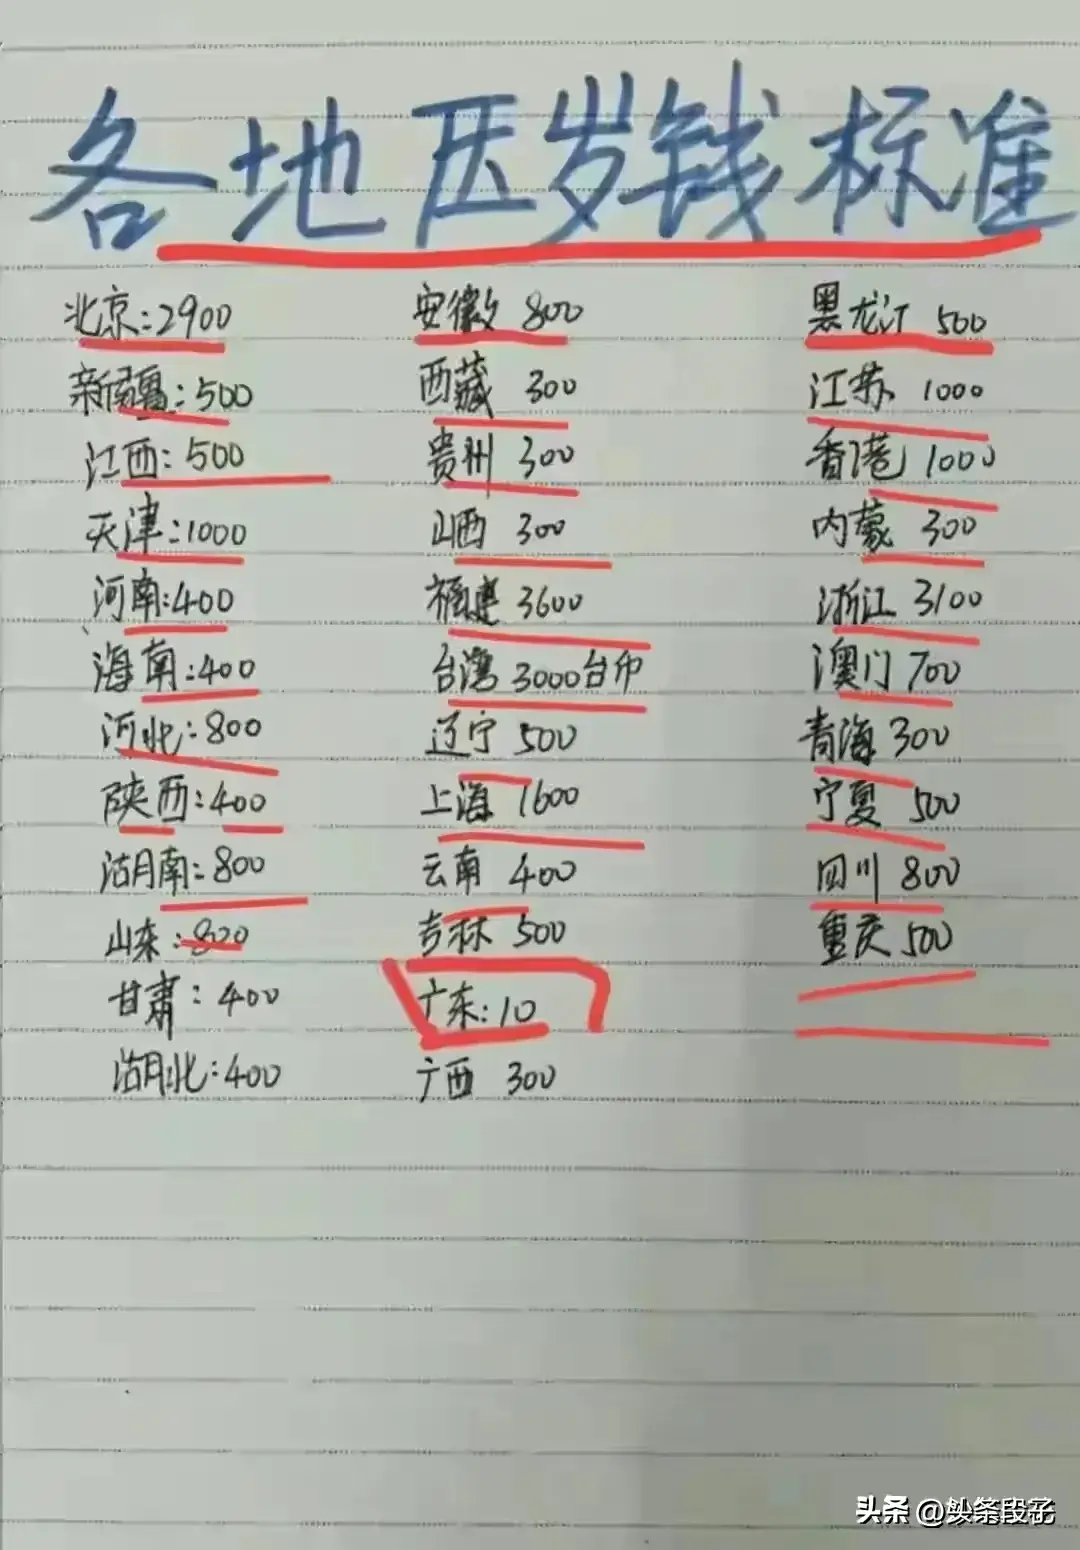 各地压岁钱标准
北京:2900
新疆:500
江西:500
天津:1000
河南:400
海南:400
河北:800
陕西:400
湖南:800
山东:800
甘肃:400
湖北:400
安徽 800
西藏 300
贵州 300
山西 300
福建 3600
台湾 3000台币
辽宁 500
上海 1600
云南 400
吉林 500
广东:10
广西 300
黑龙江 500
江苏 1000
香港 1000
内蒙 300
浙江 3100
澳门 700
青海 300
宁夏 500
四川 800
重庆 500
头条 @妙笨段子